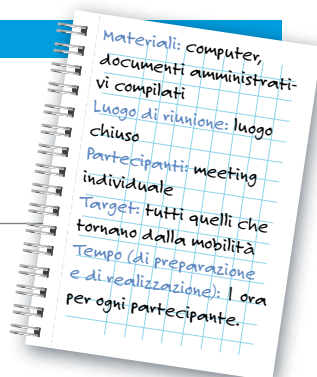 Materiali: computer,
documenti amministrati-
vi compilati
Luogo di riunione: luogo
chiuso
Partecipanti: meeting
individuale
Target: tutti quelli che
tornano dalla mobilità
Tempo (di preparazione
e di realizzazione): 1 ora
per ogni partecipante.